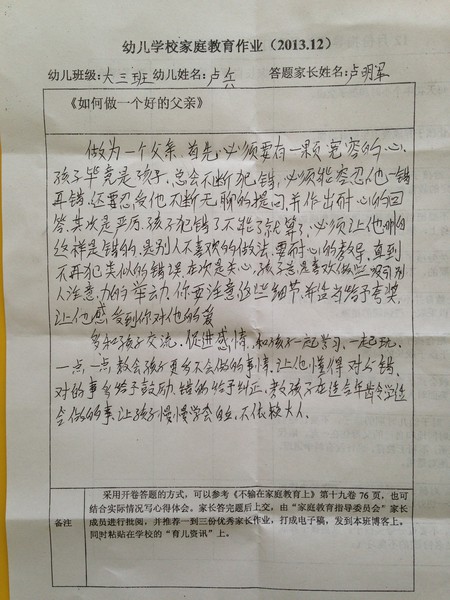 幼儿学校家庭教育作业（2013.12）
幼儿班级：大三班 幼儿姓名：卢兵 答题家长姓名：卢明军
《如何做一个好的父亲》
做为一个父亲，首先必须要有一颗宽容的心、
孩子毕竟是孩子，总会不断犯错，必须能容忍他一错
再错，还要忍受他不断无聊的提问，并作出耐心的回
答，其次是严厉，孩子犯错了不能就算了，必须让他明白
这样是错的，是别人不喜欢的做法，要耐心的教导，直到
不再犯类似的错误，在次是关心，孩子总是喜欢做些吸引别
人注意力的举动，你要注意这些细节，并适当给予夸奖，
让他感受到你对他的爱
多和孩子交流，促进感情，和孩子一起学习，一起玩、
一点一点教会孩子更多不会做的事情，让他懂得对与错，
对的事多给予鼓励，错的给予纠正，教孩子在适合年龄学适
合做的事，让孩子慢慢学会自立，不依赖大人。
备注
采用开卷答题的方式，可以参考《不输在家庭教育上》第十九卷 76 页，也可
结合实际情况写心得体会。家长答完题后上交，由“家庭教育指导委员会”家长
成员进行批阅，并推荐一到三份优秀家长作业，打成电子稿，发到本班博客上，
同时粘贴在学校的“育儿资讯”上。